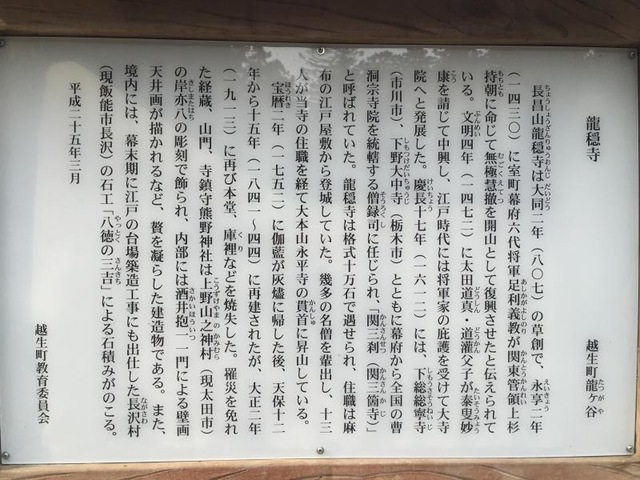 龍穏寺
越生町龍ヶ谷
長昌山龍穏寺は大同二年（八〇七）の草創で、永享二年
（一四三〇）に室町幕府六代将軍足利義教が関東管領上杉
持朝に命じて無極慧徹を開山として復興させたと伝えられて
いる。文明四年（一四七二）に太田道真・道灌父子が泰叟妙
康を請じて中興し、江戸時代には将軍家の庇護を受けて大寺
院へと発展した。慶長十七年（一六一二）には、下総総寧寺
（市川市）、下野大中寺（栃木市）とともに幕府から全国の曹
洞宗寺院を統轄する僧録司に任じられ、「関三刹（関三箇寺）」
と呼ばれていた。龍穏寺は格式十万石で遇せられ、住職は麻
布の江戸屋敷から登城していた。幾多の名僧を輩出し、十三
人が当寺の住職を経て大本山永平寺の貫首に昇山している。
宝暦二年（一七五二）に伽藍が灰燼に帰した後、天保十二
年から十五年（一八四一～四四）に再建されたが、大正二年
（一九一三）に再び本堂、庫裡などを焼失した。罹災を免れ
た経蔵、山門、寺鎮守熊野神社は上野山之神村（現太田市）
の岸亦八の彫刻で飾られ、内部には酒井抱一一門による壁画
天井画が描かれるなど、贅を凝らした建造物である。また、
境内には、幕末期に江戸の台場築造工事にも出仕した長沢村
（現飯能市長沢）の石工「八徳の三吉」による石積みがのこる。
平成二十五年三月
越生町教育委員会